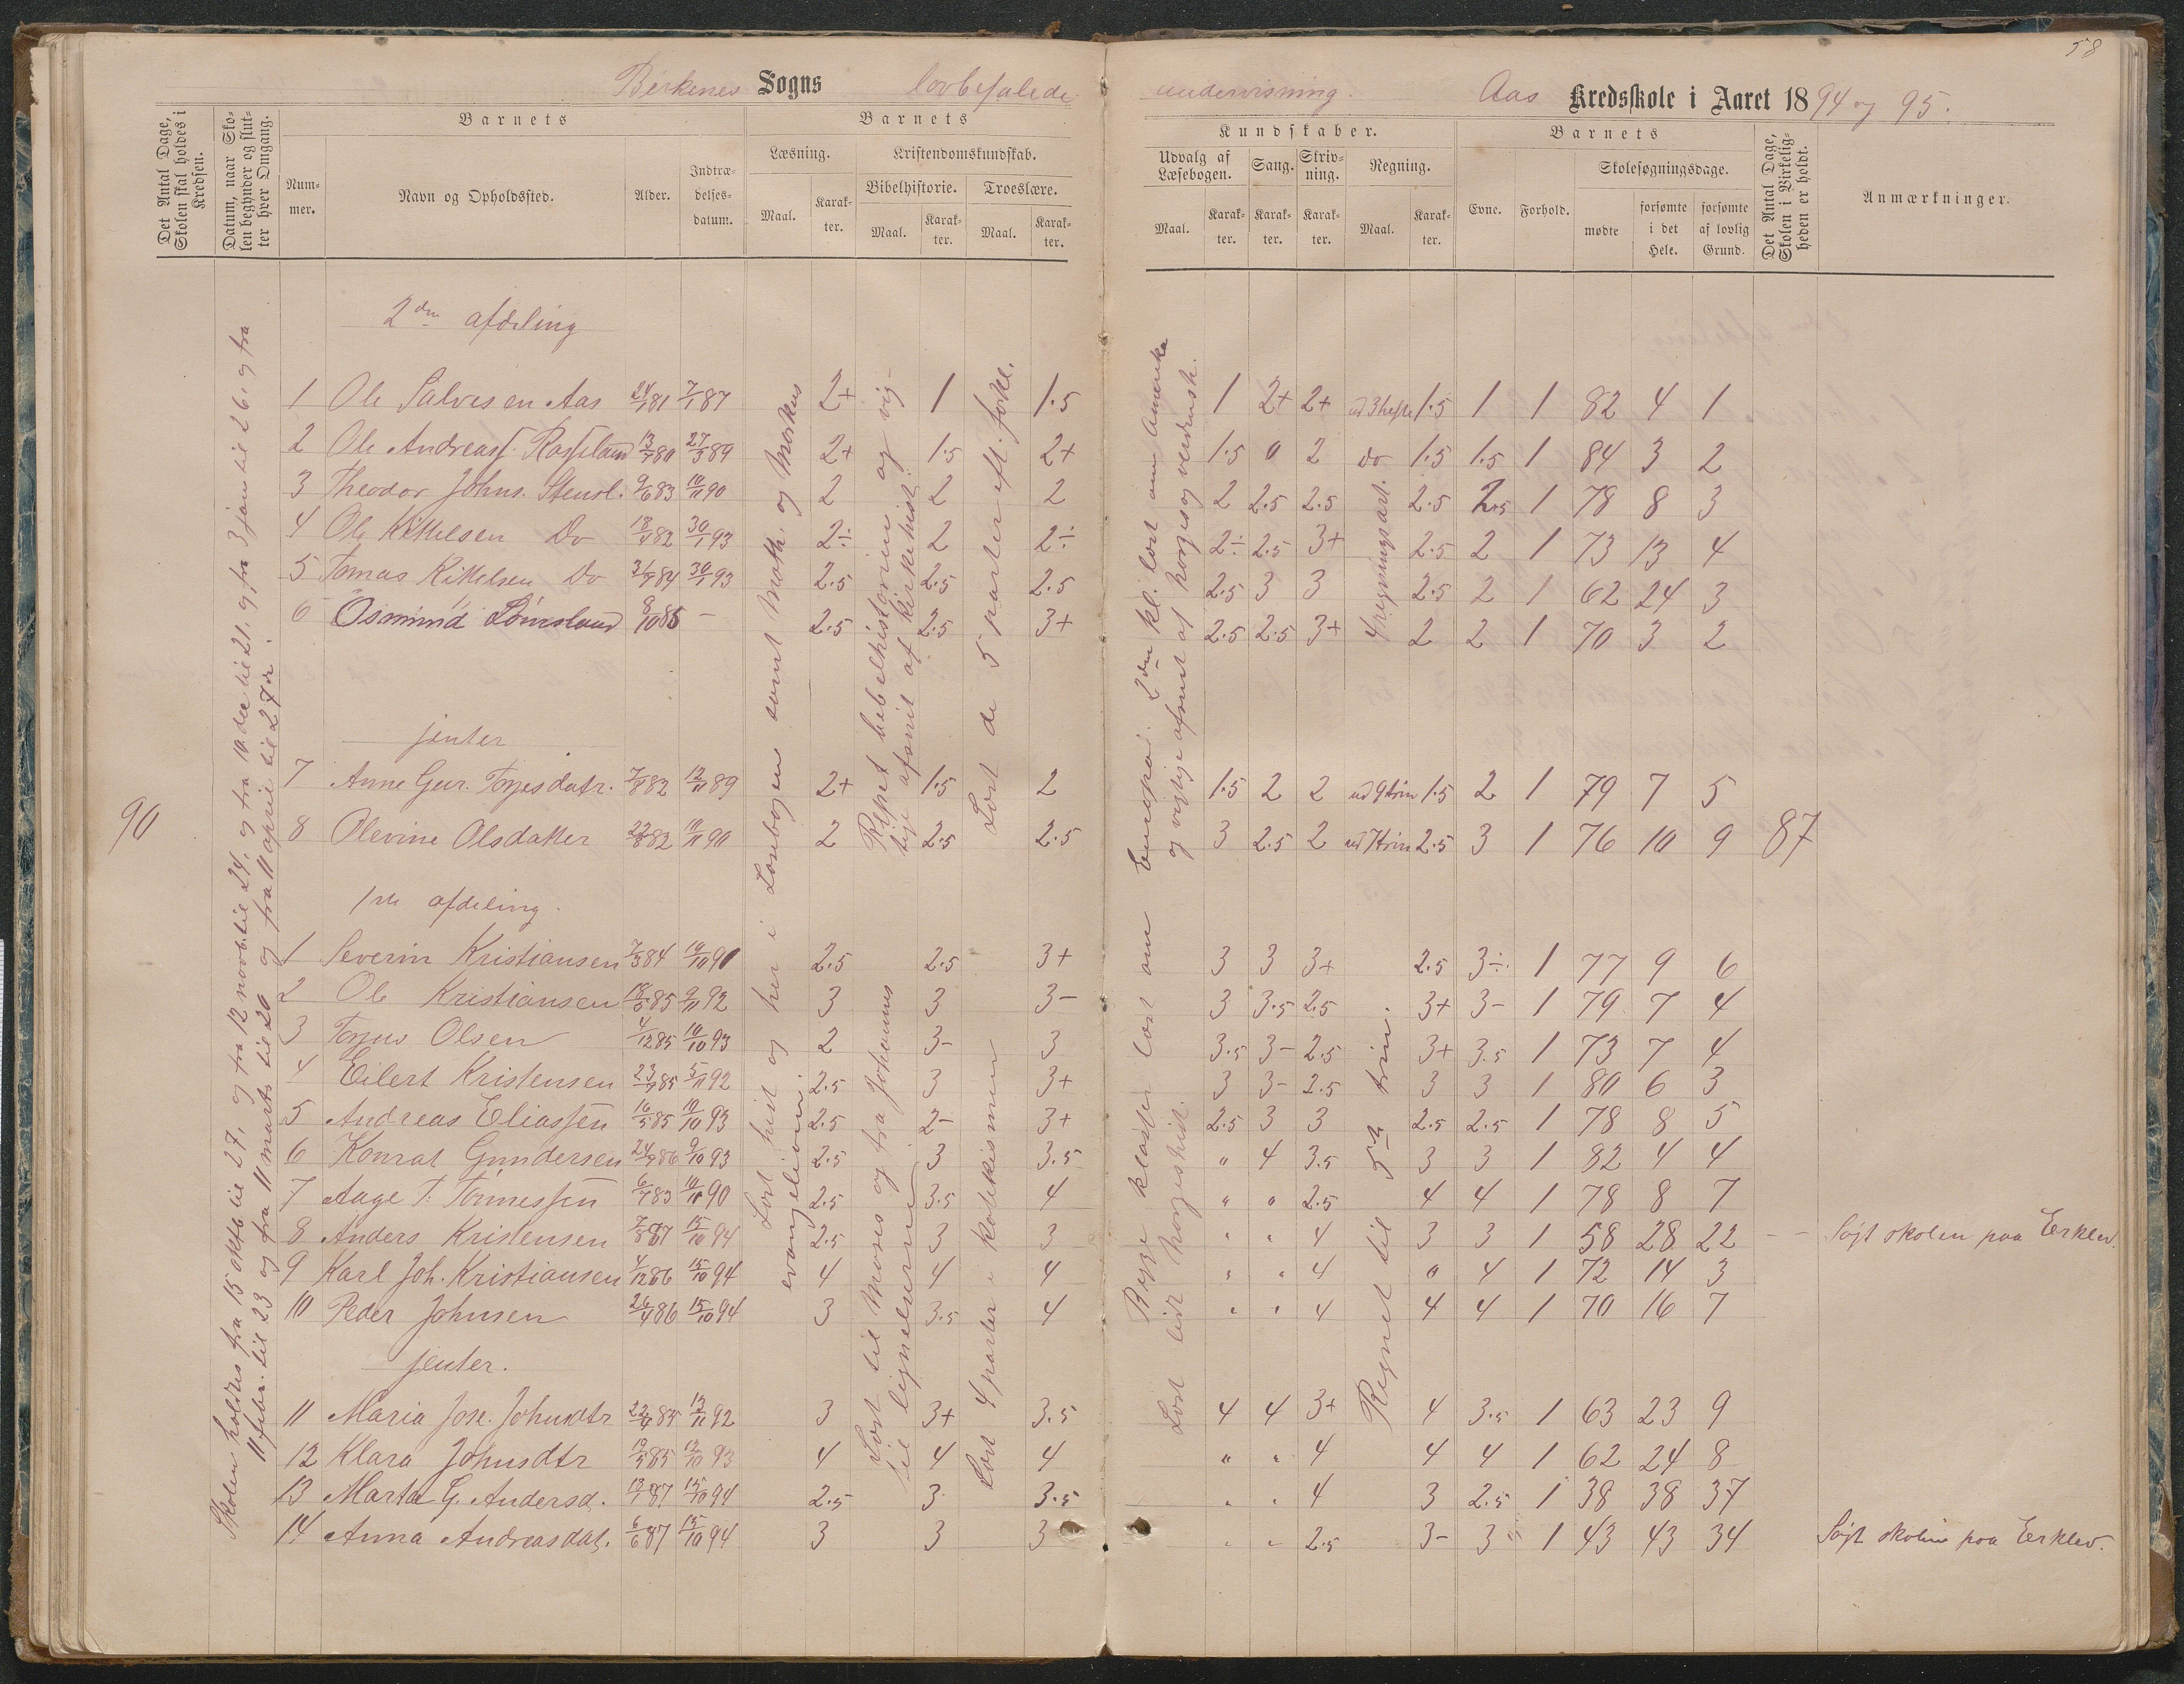 58
Birkenes Sogns lovbefalede undervisning. Aas Kredsskole i Aaret 1894 og 95.
Det Antal Dage, Skolen skal holdes i Kredsen.
Datum, naar Skolen begynder og slutter hver Omgang.
Barnets
Nummer.
Navn og Opholdssted.
Alder.
Indtrædelsesdatum.
Barnets
Læsning.
Maal.
Karakter.
Kristendomskundskab.
Bibelhistorie.
Maal.
Karakter.
Troeslære.
Maal.
Karakter.
Kundskaber.
Udvalg af Læsebogen.
Maal.
Karakter.
Sang.
Karakter.
Skrivning.
Karakter.
Regning.
Maal.
Karakter.
Barnets
Evne.
Forhold.
Skolesøgningsdage.
mødte
forsømte i det Hele.
forsømte af lovlig Grund.
Det Antal Dage, Skolen i Virkeligheden er holdt.
Anmærkninger.
90
Skolen holdtes fra 15 oktb. til 27, og fra 12 novb. til 24, og fra 10 dec til 21, og fra 3 jan til 26, og fra
11 febr. til 23 og fra 11 marts til 20 og fra 11 april til 27 de.
2den afdeling
1 Ole Salvesen Aas 24/1 81 7/1 87 2+ 1 1.5 1 2+ 2+ ud 3 hefte 1.5 1 1 82 4 1
2 Ole Andreass. Rosseland 13/7 80 27/5 89 2+ 1.5 2+ 1.5 0 2 do 1.5 1.5 1 84 3 2
3 Theodor Johns. Stensl. 9/6 83 10/11 90 2 2 2 2 2.5 2.5 2.5 2.5 1 78 8 3
4 Ole Kittelsen Do 18/4 82 30/1 93 2÷ 2 2÷ 2÷ 2.5 3+ 2.5 2 1 73 13 4
5 Tomas Kittelsen Do 31/7 84 30/1 93 2.5 2.5 2.5 2.5 3 3 2.5 2 1 62 24 3
6 Osmund Lømsland 8/10 85 - 2.5 2.5 3+ 2.5 2.5 3+ 2 2 1 70 3 2
jenter
7 Anne Gur. Torjesdatr. 7/8 82 12/11 89 2+ 1.5 2 1.5 2 2 ud 9 trin 1.5 2 1 79 7 5
8 Olevine Olsdatter 22/8 82 10/11 90 2 2.5 2.5 3 2.5 2 ud 7 trin 2.5 3 1 76 10 9 87
Læst hist og her i Læsebogen samt Math. og Markus
evangelium.
Repet bibelhistorien og vig-
tige afsnit af kirkehist.
Læst de 5 parter eft. forkl.
Europa. 2den kl. læst om Amerika
og vigtige afsnit af Norges og verdensh.
4 regningsart.
1ste afdeling.
1 Severin Kristiansen 7/3 84 10/10 91 2.5 2.5 3+ 3 3 3+ 2.5 3÷ 1 77 9 6
2 Ole Kristiansen 18/5 85 9/11 92 3 3 3- 3 3.5 2.5 3+ 3- 1 79 7 4
3 Torjus Olsen 4/12 85 10/10 93 2 3- 3 3.5 3- 2.5 3+ 3.5 1 73 7 4
4 Eilert Kristensen 23/7 85 5/11 92 2.5 3 3+ 3 3- 2.5 3 3 1 80 6 3
5 Andreas Eliassen 16/5 85 10/10 93 2.5 2- 3+ 2.5 3 3 2.5 2.5 1 78 8 5
6 Konrat Gundersen 24/7 86 9/10 93 2.5 3 3.5 " 4 3.5 3 3 1 82 4 4
7 Aage T. Tønnessen 6/7 83 10/11 90 2.5 3.5 4 " " 2.5 4 4 1 78 8 7
8 Anders Kristensen 7/8 87 15/10 94 2.5 3 3 " " 4 3 3 1 58 28 22 - - Søgt skolen paa Erklev.
9 Karl Joh. Kristiansen 4/12 86 15/10 94 4 4 4 " " 4 0 4 1 72 14 3
10 Peder Johnsen 26/4 86 15/10 94 3 3.5 4 " " 4 4 4 1 70 16 7
jenter.
11 Maria Jose. Johnsdtr 22/4 84 12/11 92 3 3+ 3.5 4 4 3+ 4 3.5 1 63 23 9
12 Klara Johnsdtr 19/5 85 12/10 93 4 4 4 " " 4 4 4 1 62 24 8
13 Marta G. Andersd. 12/7 87 15/10 94 2.5 3 3.5 " " 4 3 2.5 1 38 38 37
14 Anna Andreasdat. 6/6 87 15/10 94 3 3 3 " " 2.5 3- 3 1 43 43 34 Søgt skolen paa Erklev.
Læst til Moses og fra Johannes
til lignelserne
Læst 4 parter i katekismen
Begge klasser læst om
Læst lidt Norgeshist.
Regnet til 5te trin.